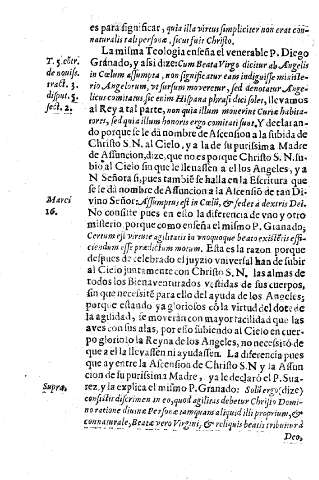 es para significar, quia illa virtus simpliciter non erat con-
naturalis tali personæ, sicut fuit Christo.
La misma Teologia enseña el venerable P. Diego
Granado, y assi dize: Cum Beata Virgo dicitur ab Angelis
in Cælum assumpta, non significatur eam indiguisse ministe-
rio Angelorum, vt sursum moveretur, sed denotatur Ange-
licus comitatus, sic enim Hispana phrasi dici solet, llevamos
al Rey a tal parte, non quia illum moverint Curiæ habita-
tores, sed quia illum honoris ergo comitati sunt. Y declaran-
do porque se le da nombre de Ascension a la subida de
Christo S. N. al Cielo, y a la de su purissima Madre
de Assuncion, dize, que no es porque Christo S. N. su-
bió al Cielo sin que le llenassen a el los Angeles, y a N
Señora si, pues tambiẽ se halla en la Escritura que
se le dà nombre de Assumption a la Ascensiõ de tan Di-
vino Señor: Assumptus est in Cœlũ, & sedet à dextris Dei.
No consiste pues en esso la diferencia de vno y otro
misterio, porque como enseña el mismo P. Granado;
Certum est virtutẽ agilitatis in vtroque beato existẽtis effi-
ciendum esse prædictum motum. Esta es la razon porque
despues de celebrado el juyzio vniversal han de subir
al Cielo juntamente con Christo S.N. las almas de
todos los Bienaventurados vestidas de sus cuerpos,
sin que necessitẽ para ello del ayuda de los Angeles;
porque estando ya gloriosos cõ la virtud del dote de
la agilidad, se moverán con mayor facilidad que las
aves con sus alas, por esso subiendo al Cielo en cuer-
po glorioso la Reyna de los Angeles, no necessitó de
que a el la llevassen ni ayudassen. La diferencia pues
que ay entre la Ascension de Christo S.N y la Assun
cion de su purissima Madre, ya le declaró el P. Sua-
rez, y la explica el mismo P. Granado: Solũ ergo (dize)
consistit discrimen in eo, quod agilitas debetur Christo Domi-
no ratione divinæ Personæ tamquam aliquid illi proprium, &
connaturale, Beatæ vero Virgini, & reliquis beatis tribuitur à
Deo,
T. 5. cõtr.
de noviss.
tract. 3.
disput. 5.
sect. 2.
Marci
16.
Supra,